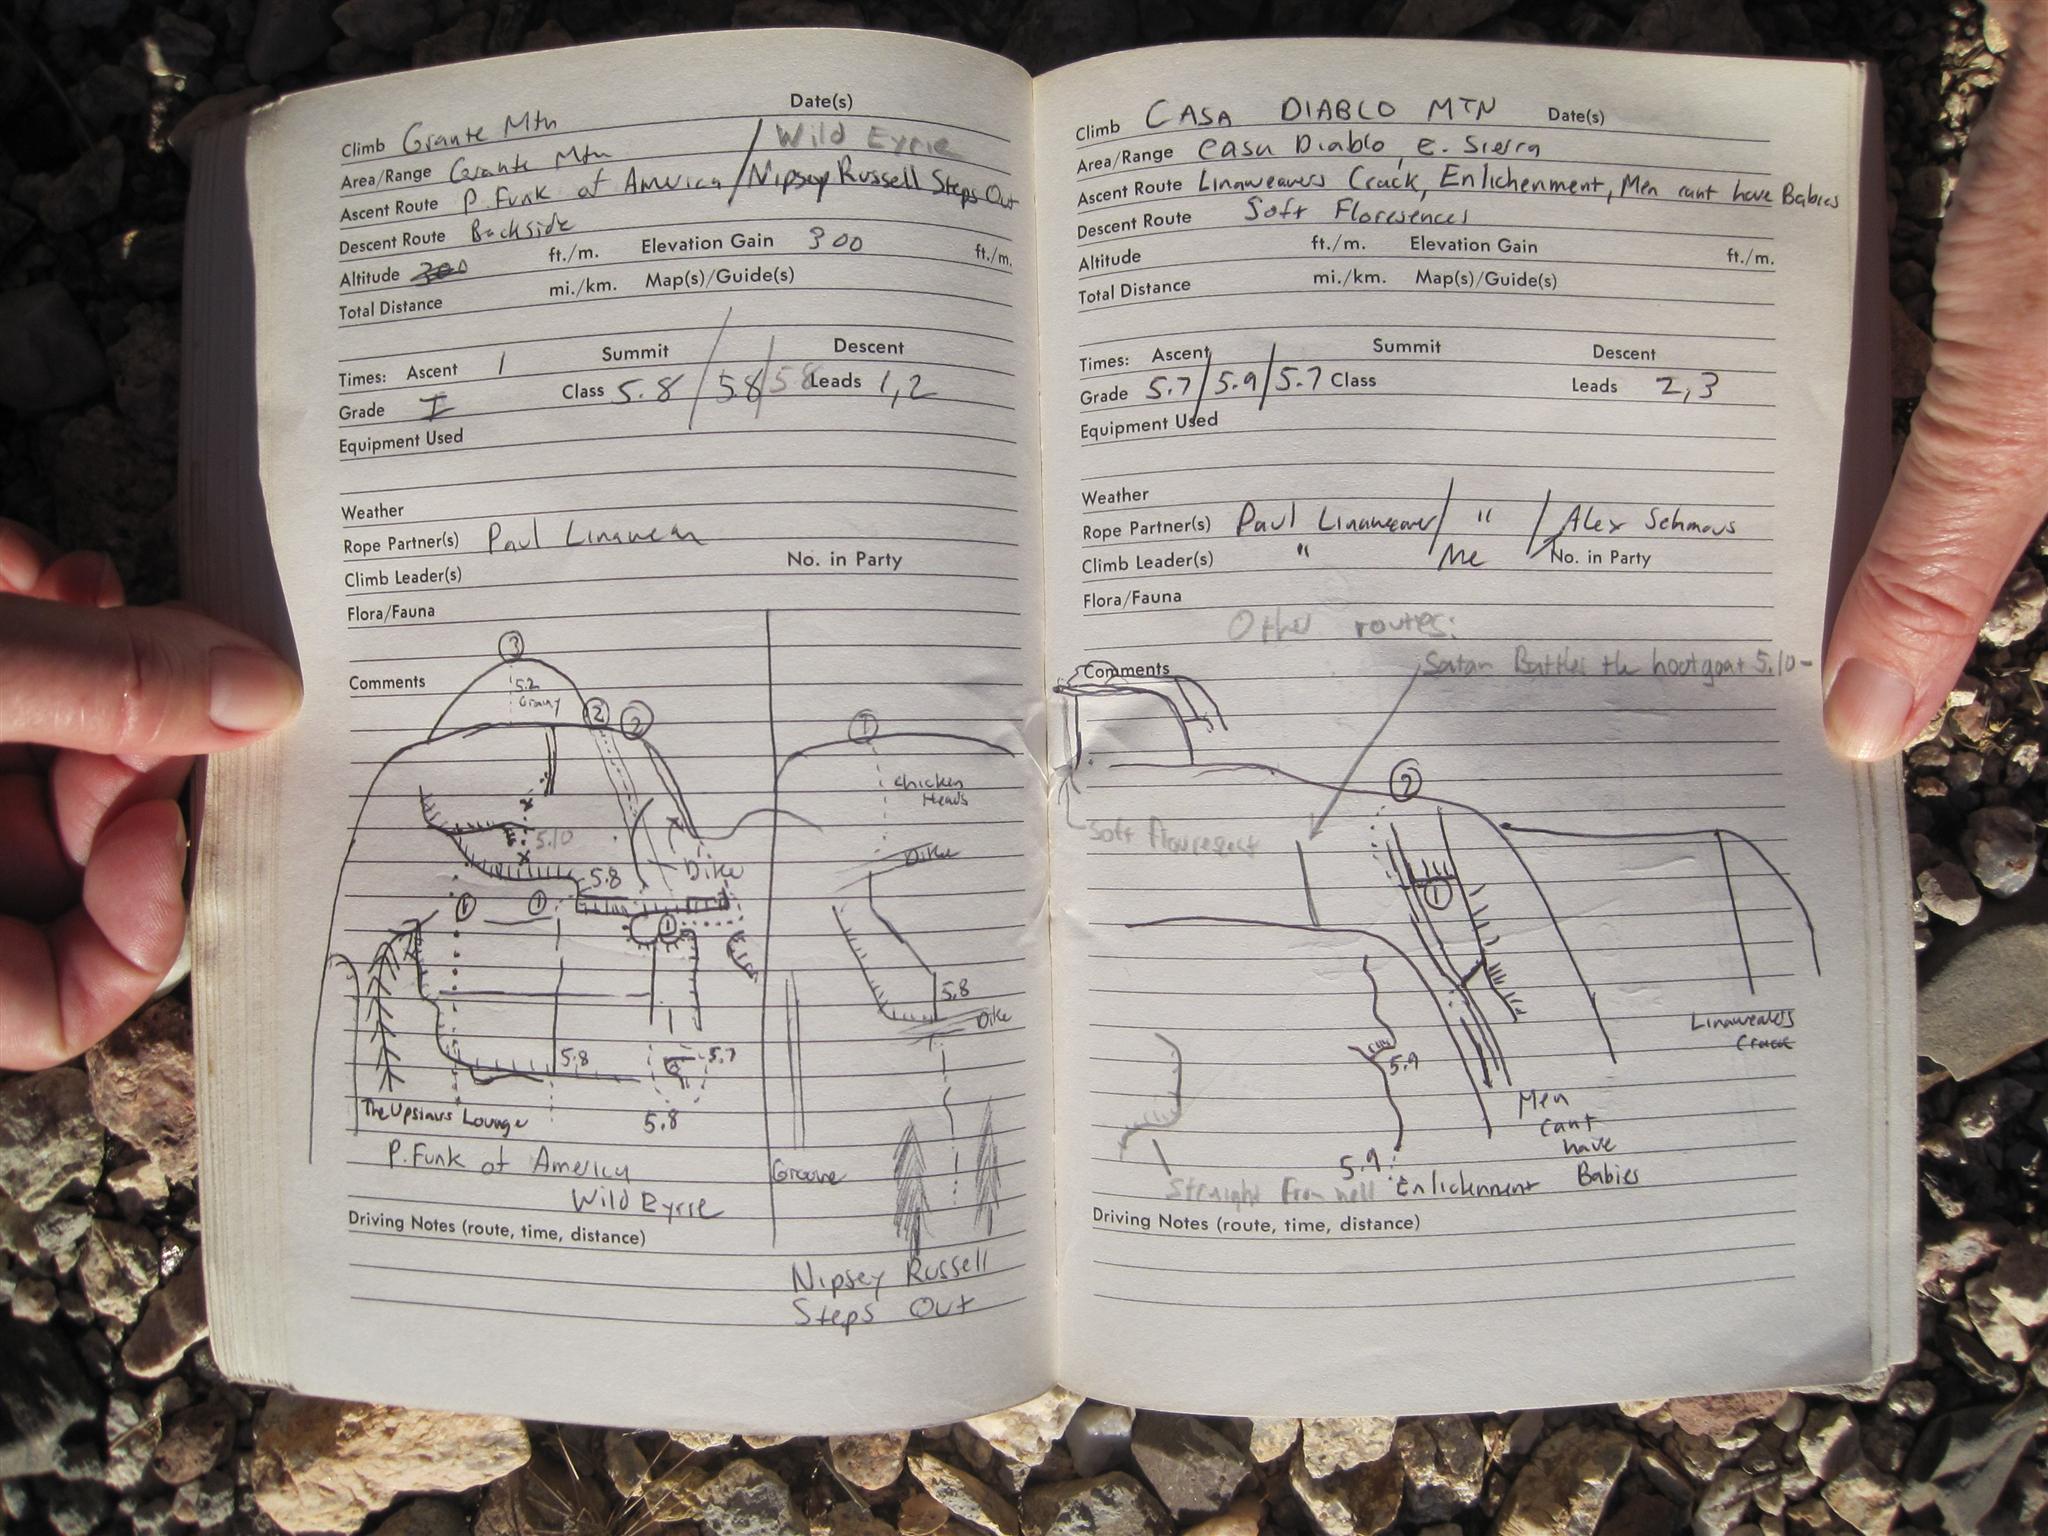 Date(s)
Climb Granite Mtn
Wild Eyrie
Area/Range Granite Mtn
Ascent Route P. Funk of America / Nipsey Russell Steps Out
Descent Route Backside
Altitude 300 ft./m. Elevation Gain 300 ft./m.
Total Distance mi./km. Map(s)/Guide(s)
Times: Ascent 1 Summit Descent
Grade I Class 5.8 / 5.8 / 5.8 Leads 1,2
Equipment Used
Weather
Rope Partner(s) Paul
Climb Leader(s) No. in Party
Flora/Fauna
Comments
3
5.2
2
2
1
Chicken
Heads
5.10
Dike
5.8
Dike
1
1
1
5.8
Dike
5.8
5.7
5.8
The Upstairs Lounge
P. Funk of America
Groove
Wild Eyrie
Driving Notes (route, time, distance)
Nipsey Russell
Steps Out
Climb CASA DIABLO MTN Date(s)
Area/Range Casa Diablo, E. Sierra
Ascent Route Linaweavers Crack, Enlichenment, Men cant have Babies
Descent Route Soft Floresences
Altitude ft./m. Elevation Gain ft./m.
Total Distance mi./km. Map(s)/Guide(s)
Times: Ascent Summit Descent
Grade 5.7 / 5.9 / 5.7 Class Leads 2,3
Equipment Used
Weather
Rope Partner(s) Paul Linaweaver / " / Alex Schmaus
Climb Leader(s) " Me No. in Party
Flora/Fauna
Other routes:
Comments
Satan Battles the hootgoat 5.10-
2
Soft
1
Linaweavers
Crack
5.9
Men
cant
have
Babies
5.9
Straight From hell
Enlichenment
Driving Notes (route, time, distance)